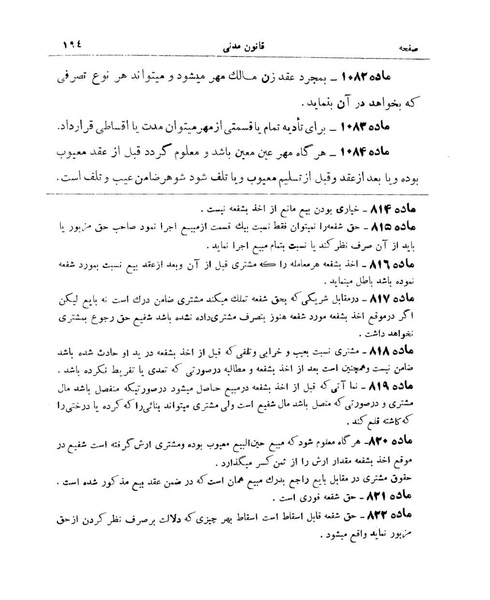 صفحه قانون مدنی ١٩٤
ماده ١٠٨٢ - بمجرد عقد زن مالك مهر میشود و میتواند هر نوع تصرفی
که بخواهد در آن بنماید.
ماده ١٠٨٣ - برای تأدیه تمام یا قسمتی از مهر میتوان مدت یا اقساطی قرارداد.
ماده ١٠٨٤ - هر گاه مهر عین معین باشد و معلوم گردد قبل از عقد معیوب
بوده ویا بعد از عقد وقبل از تسلیم معیوب ویا تلف شود شوهر ضامن عیب و تلف است.
ماده ٨١٤ - خیاری بودن بیع مانع از اخذ بشفعه نیست.
ماده ٨١٥ - حق شفعه را نمیتوان فقط نسبت بیك قسمت از مبیع اجرا نمود صاحب حق مزبور یا
باید از آن صرف نظر کند یا نسبت بتمام مبیع اجرا نماید.
ماده ٨١٦ - اخذ بشفعه هر معامله را که مشتری قبل از آن وبعد از عقد بیع نسبت بمورد شفعه
نموده باشد باطل مینماید.
ماده ٨١٧ - در مقابل شریکی که بحق شفعه تملك میکند مشتری ضامن درك است نه بایع لیکن
اگر در موقع اخذ بشفعه مورد شفعه هنوز بتصرف مشتری داده نشده باشد شفیع حق رجوع بمشتری
نخواهد داشت.
ماده ٨١٨ - مشتری نسبت بعیب و خرابی وتلفی که قبل از اخذ بشفعه در ید او حادث شده باشد
ضامن نیست وهمچنین است بعد از اخذ بشفعه و مطالبه در صورتی که تعدی یا تفریط نکرده باشد.
ماده ٨١٩ - نما آتی که قبل از اخذ بشفعه در مبیع حاصل میشود در صورتیکه منفصل باشد مال
مشتری و در صورتی که متصل باشد مال شفیع است ولی مشتری میتواند بنائی را که کرده یا درختی را
که کاشته قلع کند.
ماده ٨٢٠ - هر گاه معلوم شود که مبیع حین البیع معیوب بوده ومشتری ارش گرفته است شفیع در
موقع اخذ بشفعه مقدار ارش را از ثمن کسر میگذارد.
حقوق مشتری در مقابل بایع راجع بدرك مبیع همان است که در ضمن عقد بیع مذکور شده است.
ماده ٨٢١ - حق شفعه فوری است.
ماده ٨٢٢ - حق شفعه قابل اسقاط است اسقاط بهر چیزی که دلالت بر صرف نظر کردن از حق
مزبور نماید واقع میشود.